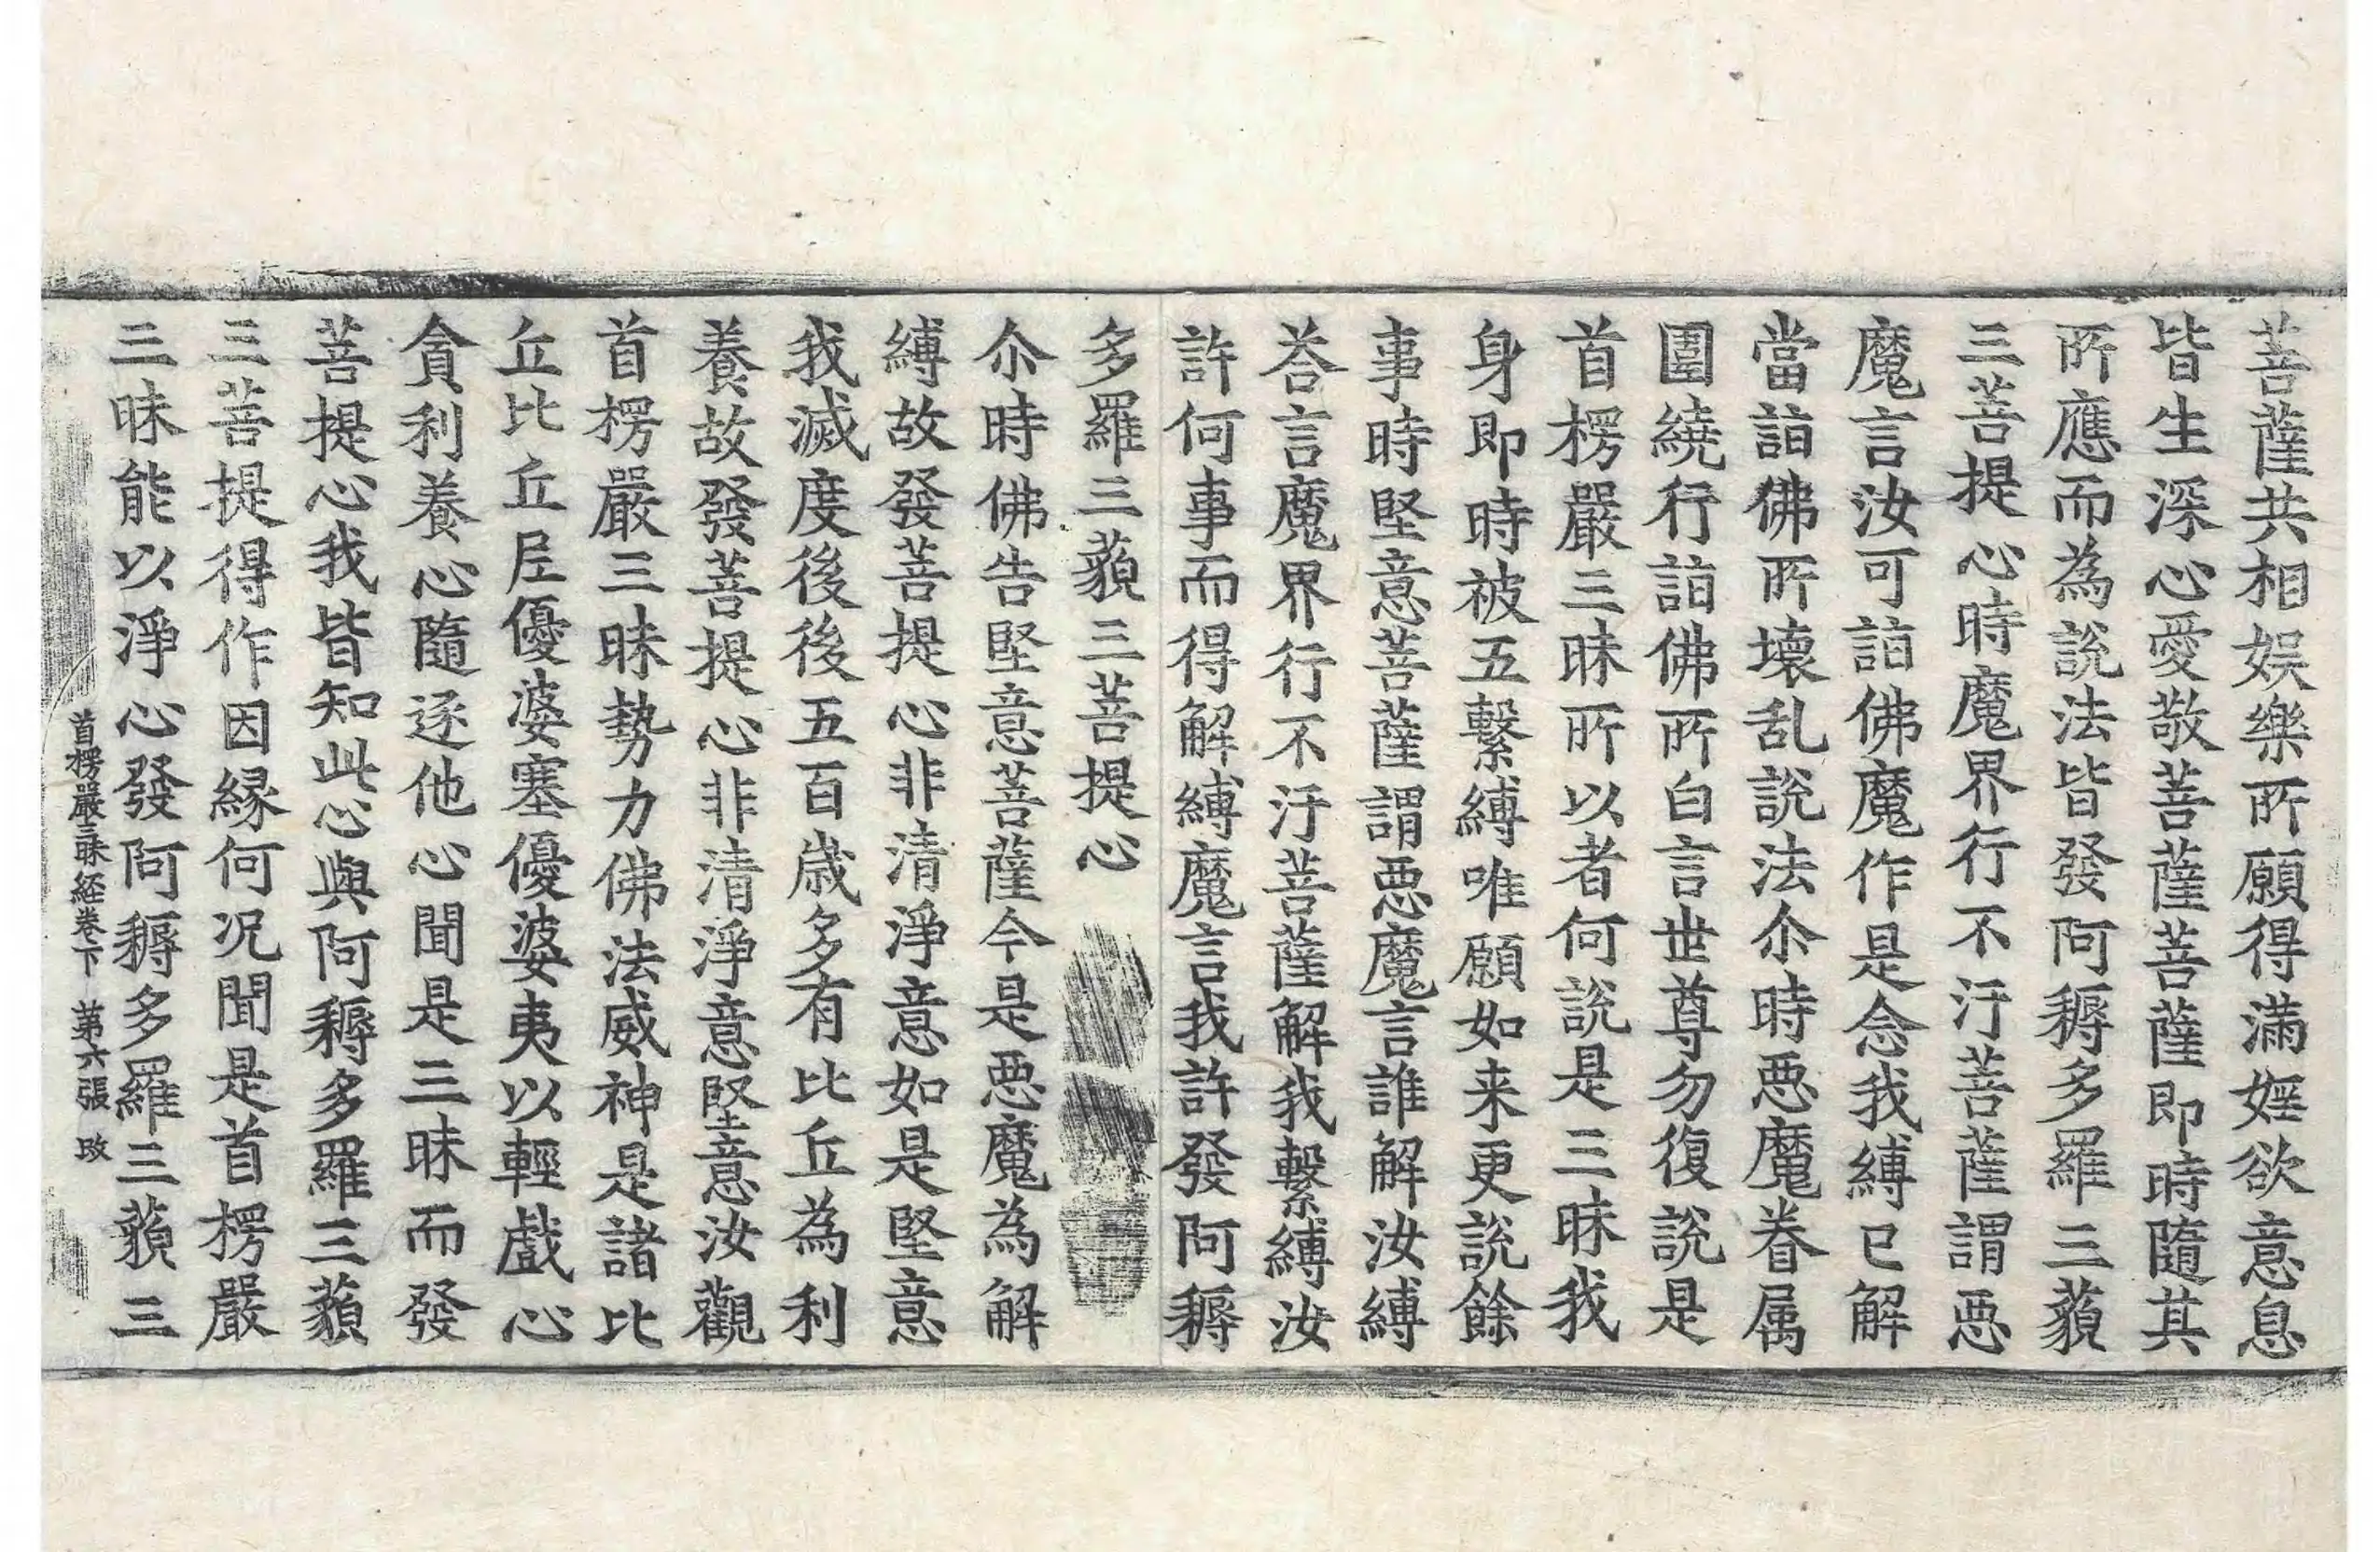 菩薩共相娯樂所願得滿婬欲意息
皆生深心愛敬菩薩菩薩即時隨其
所應而為說法皆發阿耨多羅三藐
三菩提心時魔界行不汙菩薩謂惡
魔言汝可詣佛魔作是念我縛已解
當詣佛所壞乱說法尒時惡魔眷属
圍繞行詣佛所白言世尊勿復說是
首楞嚴三昧所以者何說是三昧我
身即時被五繫縛唯願如来更說餘
事時堅意菩薩謂惡魔言誰解汝縛
荅言魔界行不汙菩薩解我繫縛汝
許何事而得解縛魔言我許發阿耨
多羅三藐三菩提心
尒時佛告堅意菩薩今是惡魔為解
縛故發菩提心非清淨意如是堅意
我滅度後後五百歲多有比丘為利
養故發菩提心非清淨意堅意汝觀
首楞嚴三昧勢力佛法威神是諸比
丘比丘尼優婆塞優婆夷以輕戲心
貪利養心隨逐他心聞是三昧而發
菩提心我皆知此心與阿耨多羅三藐
三菩提得作因緣何况聞是首楞嚴
三昧能以淨心發阿耨多羅三藐三
首楞嚴三昧経卷下 第六張 改